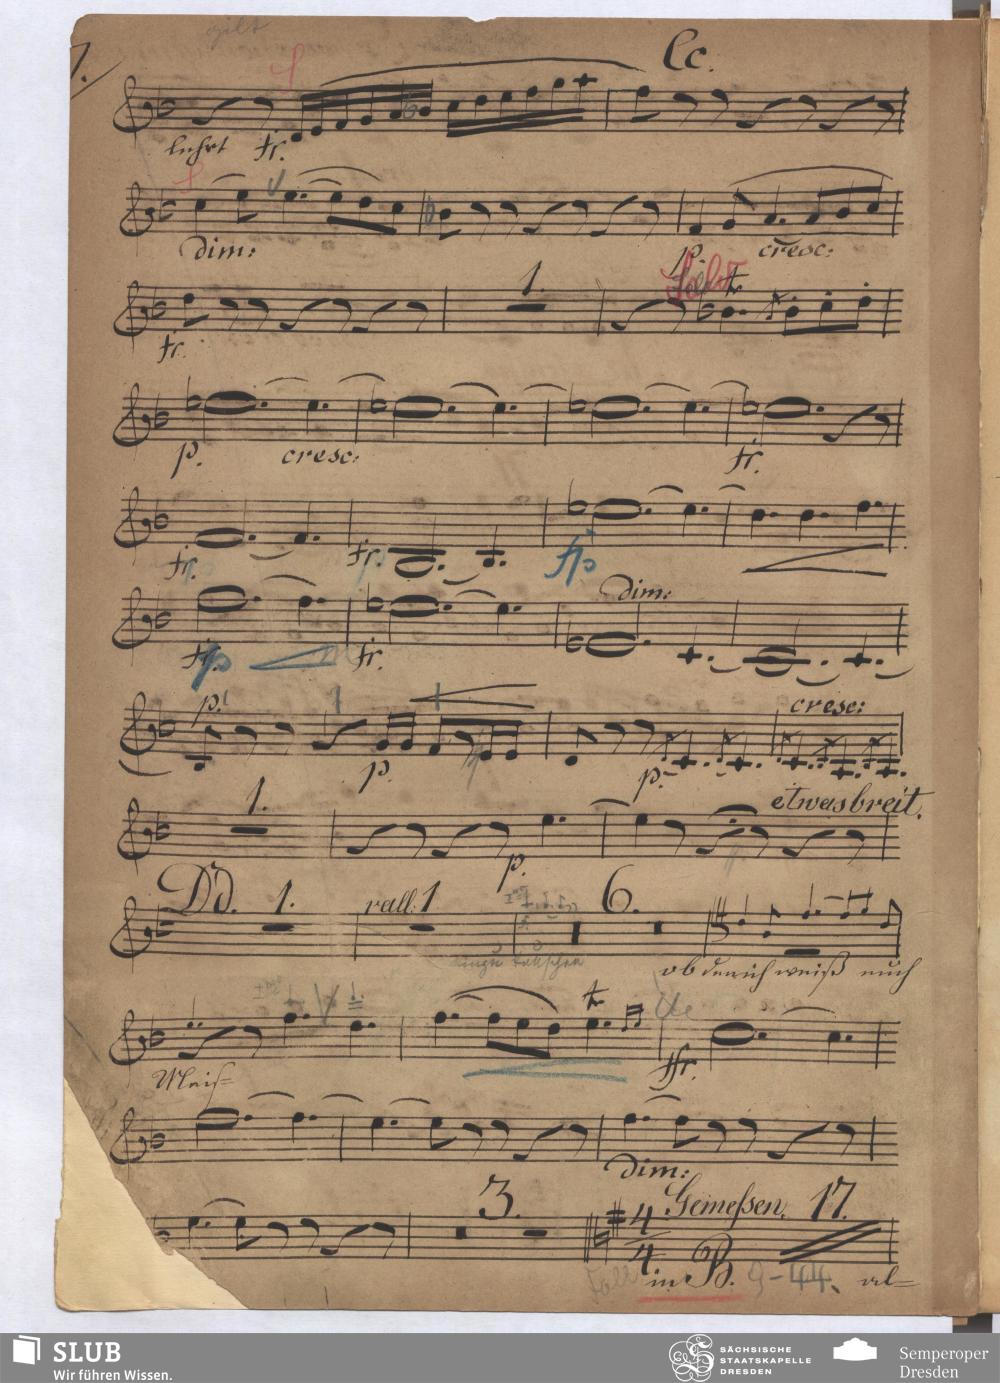 gilt
1. Cc.
lehrt fr.
dim: p. cresc:
1. Solo tr
fr.
p. cresc: fr.
fr. fr. fp
dim:
fr. fr.
p. cresc:
p. p.
1. etwas breit.
p.
Dd. 1. rall: 1 6.
ob euch weiß euch
tr
Meis= ffr.
dim:
3. Gemeßen. 17.
4/4
in B. 9-44. al=
SLUB
Wir führen Wissen.
SÄCHSISCHE
STAATSKAPELLE
DRESDEN
Semperoper
Dresden